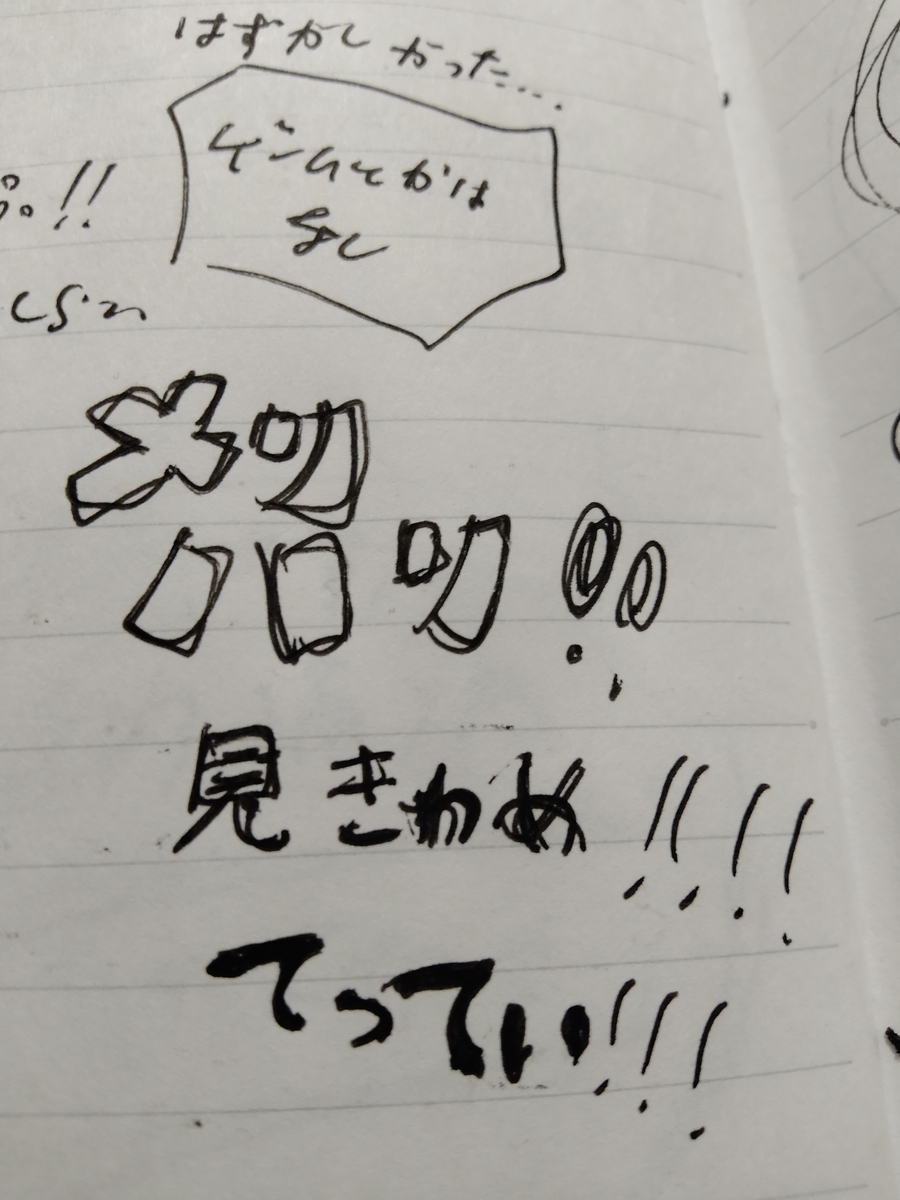 はずかしかった....
!!
ゲームとかは
なし
メリ
ハリ!!
見きわめ!!!!
てってい!!!